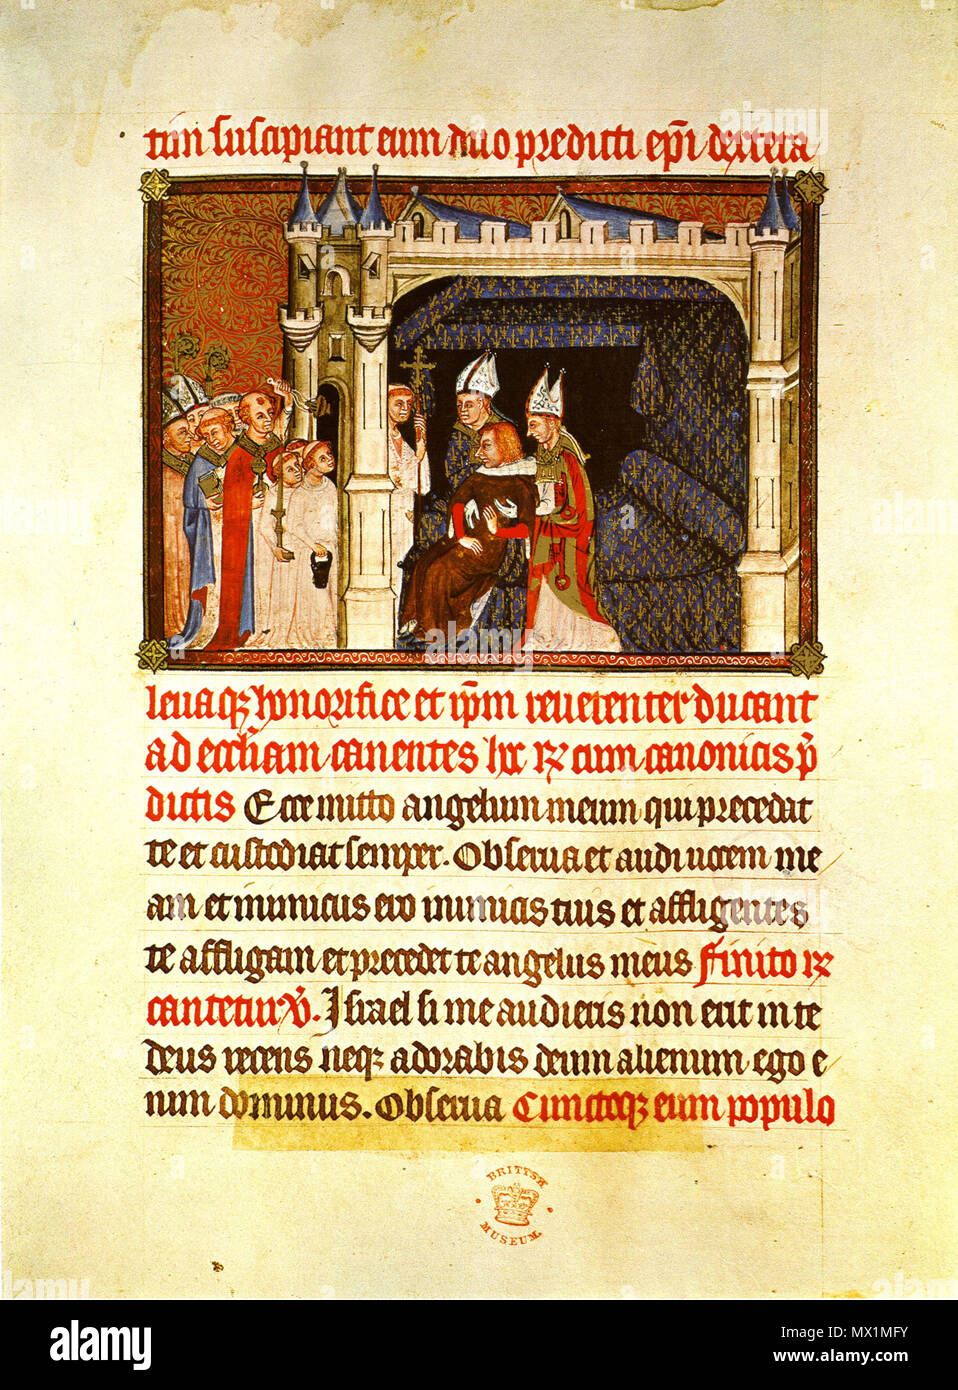 tim suscipiant eum duo predicti ep̄i dextera
leuaqꝫ honorifice et ip̄m reuerenter ducant
ad eccl̄iam canentes hc ꝶ cum canonicis p̄
dictis Ecce mitto angelum meum qui precedat
te et custodiat semper. Obserua et audi uocem me
am et inimicus ero inimicis tuis et affligentes
te affligam et precedet te angelus meus finito ꝶ
cantetur ꝟ. Israel si me audieris non erit in te
deus recens neqꝫ adorabis deum alienum ego e
nim dominus. Obserua Cunctoqꝫ eum populo
BRITISH
MUSEUM
alamy
Image ID: MX1MFY
www.alamy.com